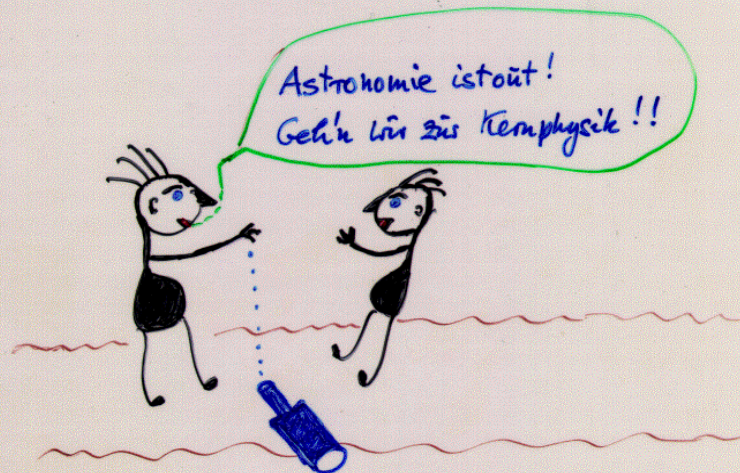 Astronomie ist out!
Geh'n wir zur Kernphysik!!